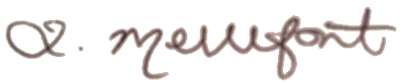 Q. Mellefont